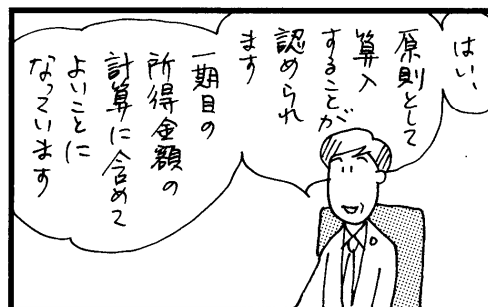 はい、
原則として
算入
することが
認められ
ます
一期目の
所得金額の
計算に含めて
よいことに
なっています